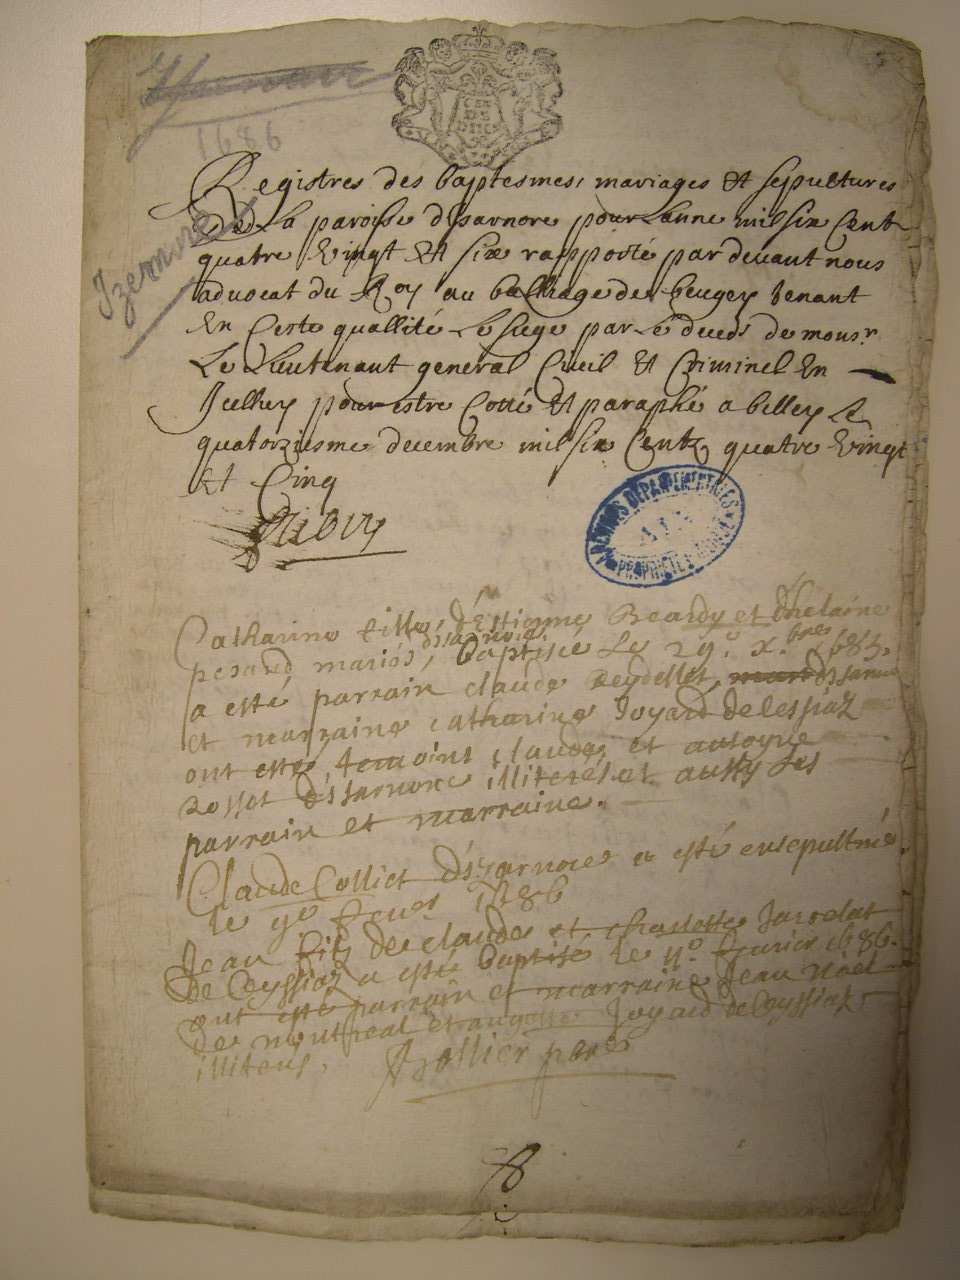 1686
Izernore
Registres des baptesmes, mariages et sepultures
de La paroisse disarnore pour Lanne mil six Cent
quatre Vingt et six rapporté par devant nous
advocat du Roy au balliage de beugey tenant
En Ceste quallité Le siege par Le deceds de monsr
Le Lieutenant general Civil et Criminel En
Icelluy pour estre Cotté et paraphé a belley Le
quatorziesme decembre mil six Centz quatre Vingt
et Cinq
ARCHIVES DEPARTEMENTALES
AIN
PROPRIETE PUBLIQUE
Catharine fille d'Estienne Beardy et d'helaine
perand mariés, disarnore, baptisée Le 29e xbre 1685.
a esté parrain claude Reydellet, disarnore
et marraine catharine Joyard de lespiaz
ont esté temoins claude et antoyne
Rossot disarnore illiterés et aussy les
parrain et marraine.
Claude Colliet d'Isarnore a esté ensepulturé
le 9e feuer 1686
Jean fils de claude et charlotte Jarrelat
de Ceyssiaz a esté baptisé le 11e feurier 1686.
ont esté parrain et marraine Jean Noel
de montreal et Joyard de Ceyssiaz
illiterés.
8